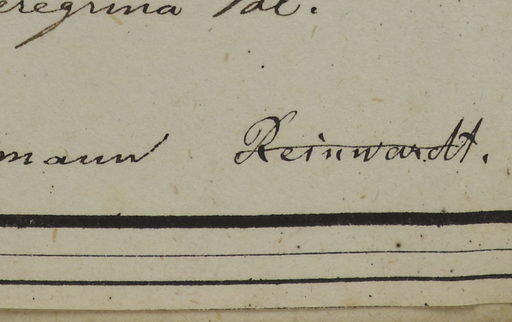 eregrina
mann Reinwardt.